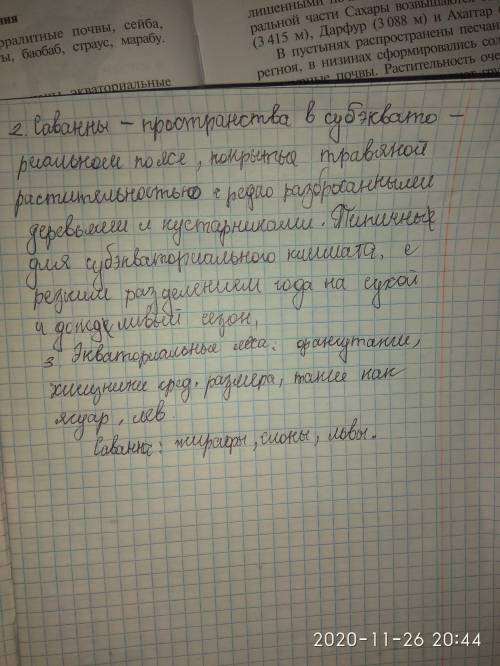 ния
рралитные почвы, сейба,
ты, баобаб, страус, марабу.
экваториальные
лишенными
ральной части Сахары возвышаются
(3 415 м), Дарфур (3 088 м) и Ахаггар (
В пустынях распространены песчан
региона, в низинах сформировались сол
почвы. Растительность оче
2. Саванны – пространства в субэквато –
риальном поясе, покрытые травяной
растительностью с редко разбросанными
деревьями и кустарниками. Типичные
для субэкваториального климата, с
резким разделением года на сухой
и дождливый сезон,
3 Экваториальные леса: орангутанги,
хищники сред. размера, такие как
ягуар, лев.
Саванна: жирафы, слоны, львы.
2020-11-26 20:44